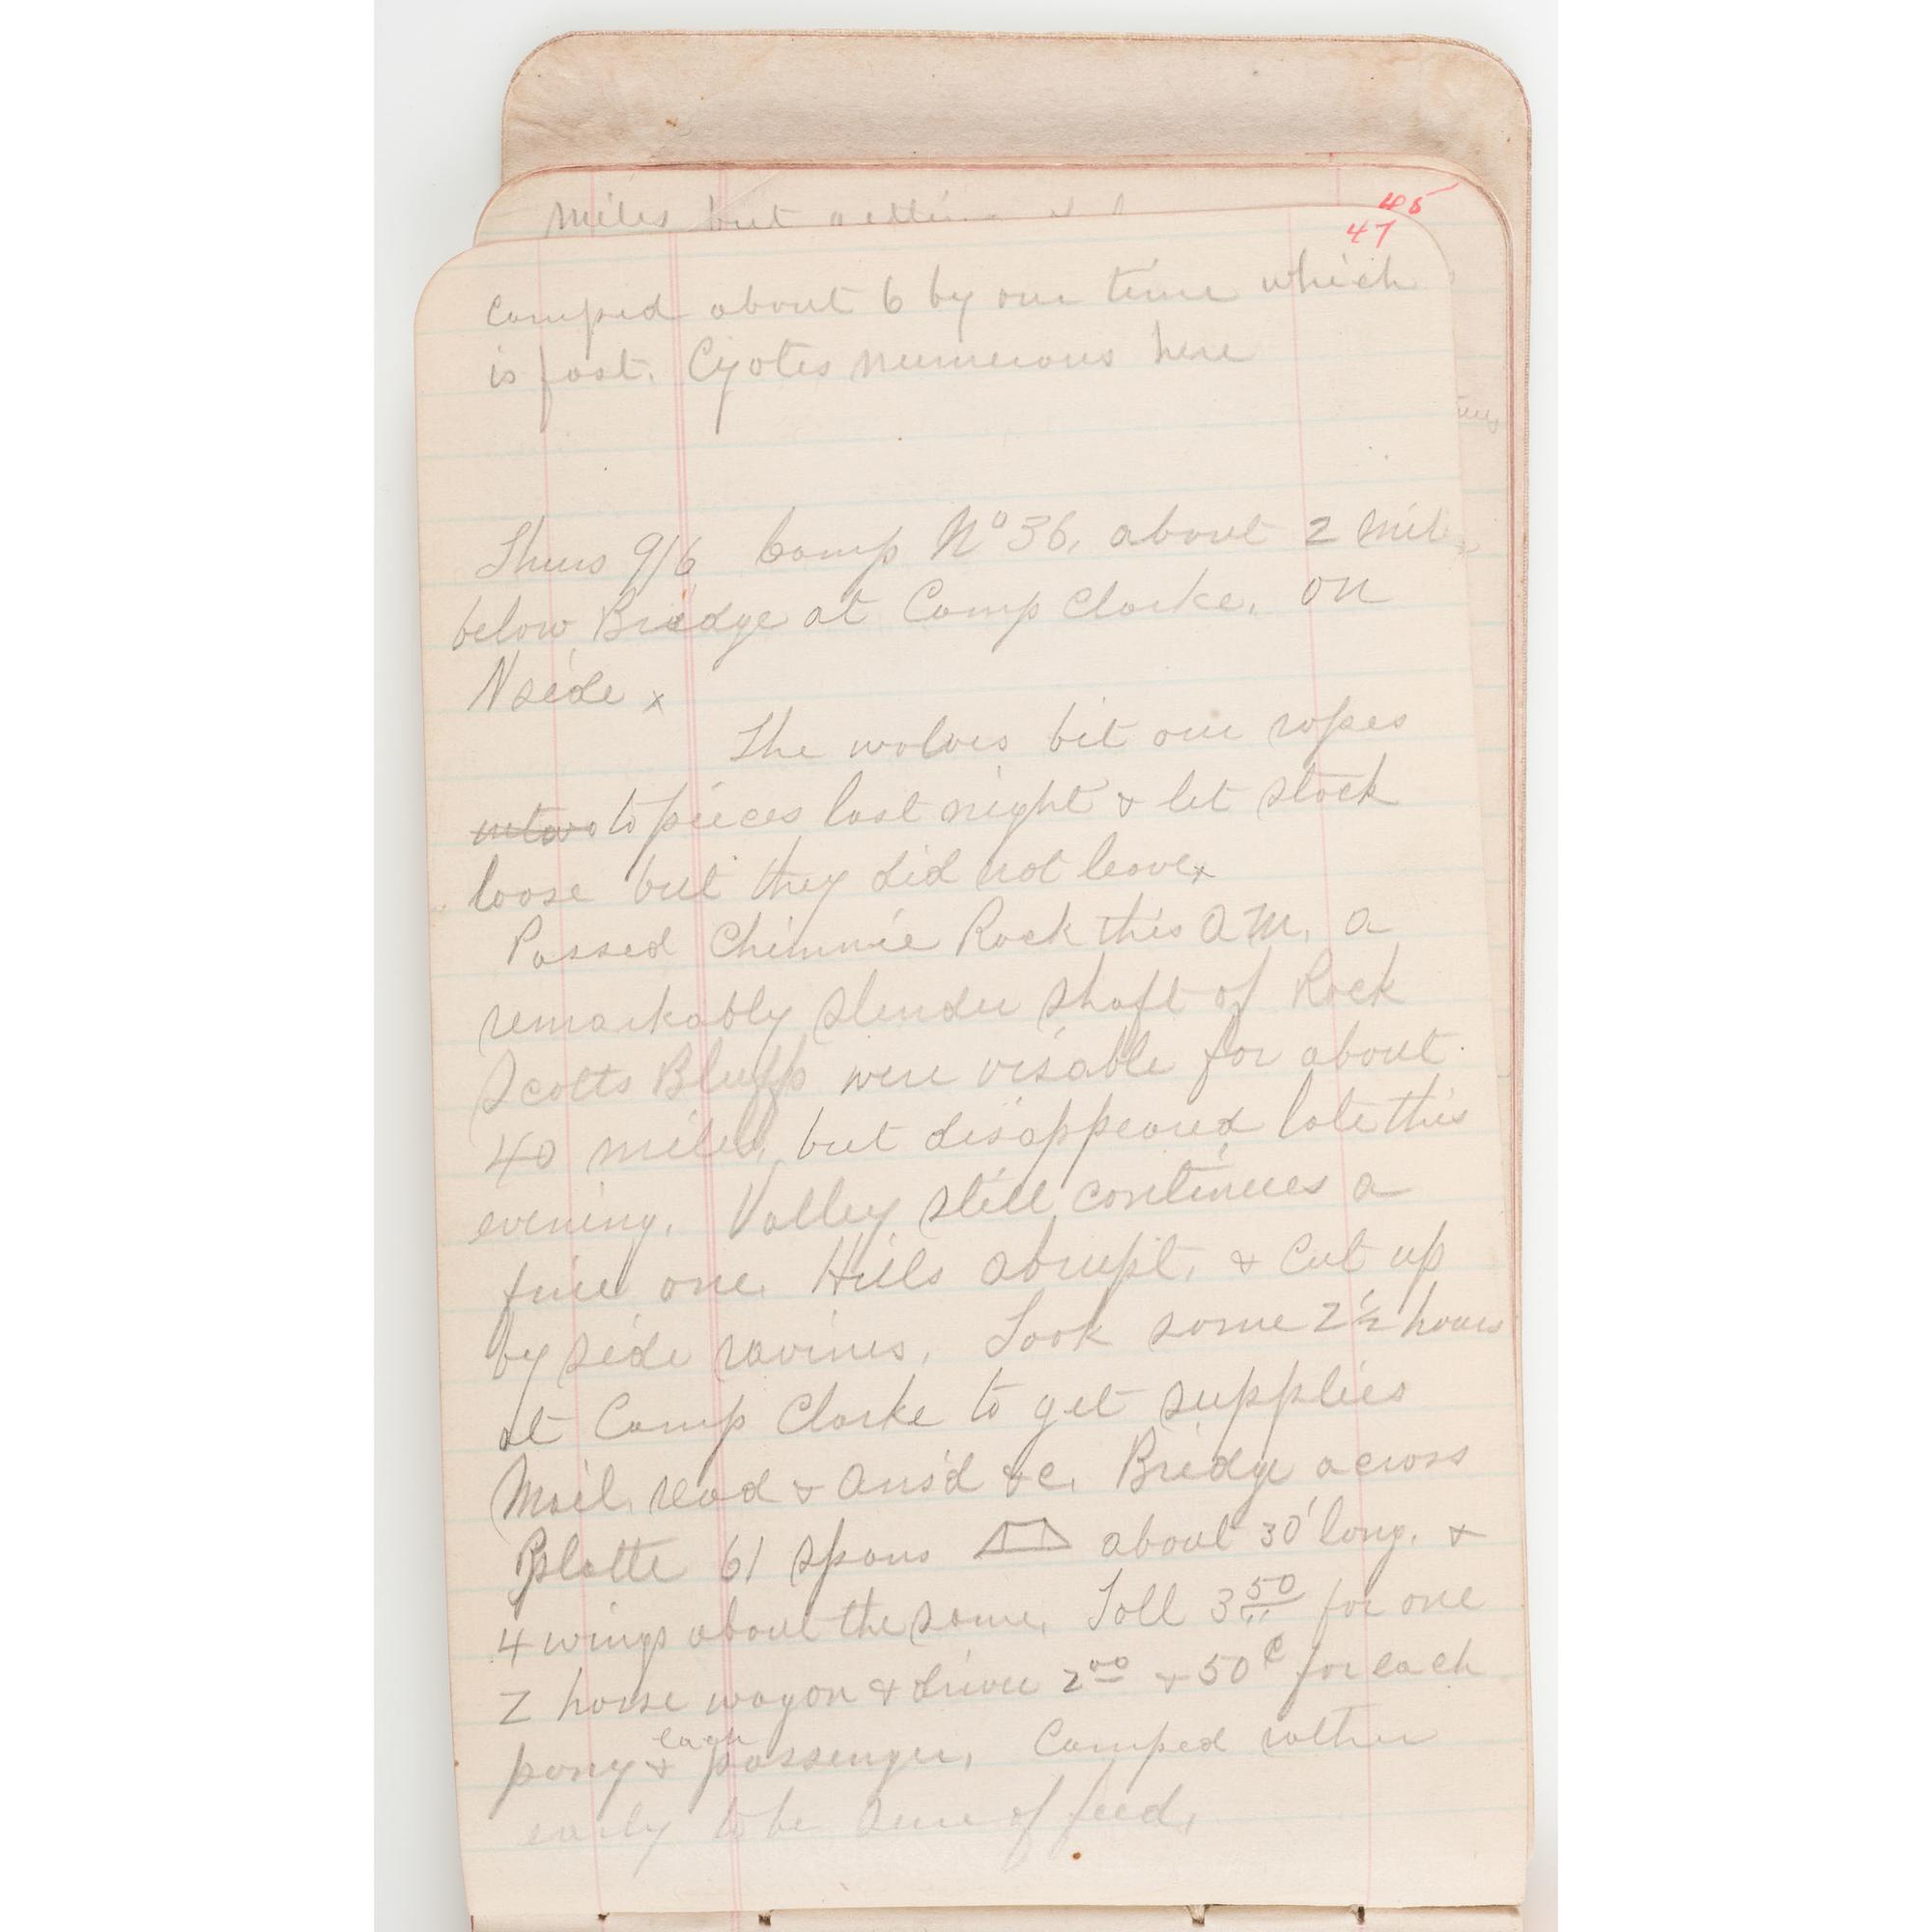 45
miles but getting
47
camped about 6 by our time which
is fast. Cyotes numerous here
Thurs 9/6 Camp No 36, about 2 miles
below Bridge at Camp Clarke. on
N side x
The wolves bit our ropes
in two to pieces last night & let stock
loose but they did not leave x
Passed Chimnie Rock this A M, a
remarkably slender shaft of Rock
Scotts Bluffs were visable for about
40 miles, but disappeared late this
evening. Valley still continues a
fine one. Hills abrupt, & cut up
by side ravines. Took some 2 1/2 hours
at Camp Clarke to get supplies
Mail, read & ans'd &c. Bridge across
Platte 61 spans about 30' long. &
4 wings about the same. Toll 3 50 for one
2 horse wagon & driver 2 00 & 50 c for each
each
pony & passenger. Camped rather
early to be sure of feed.